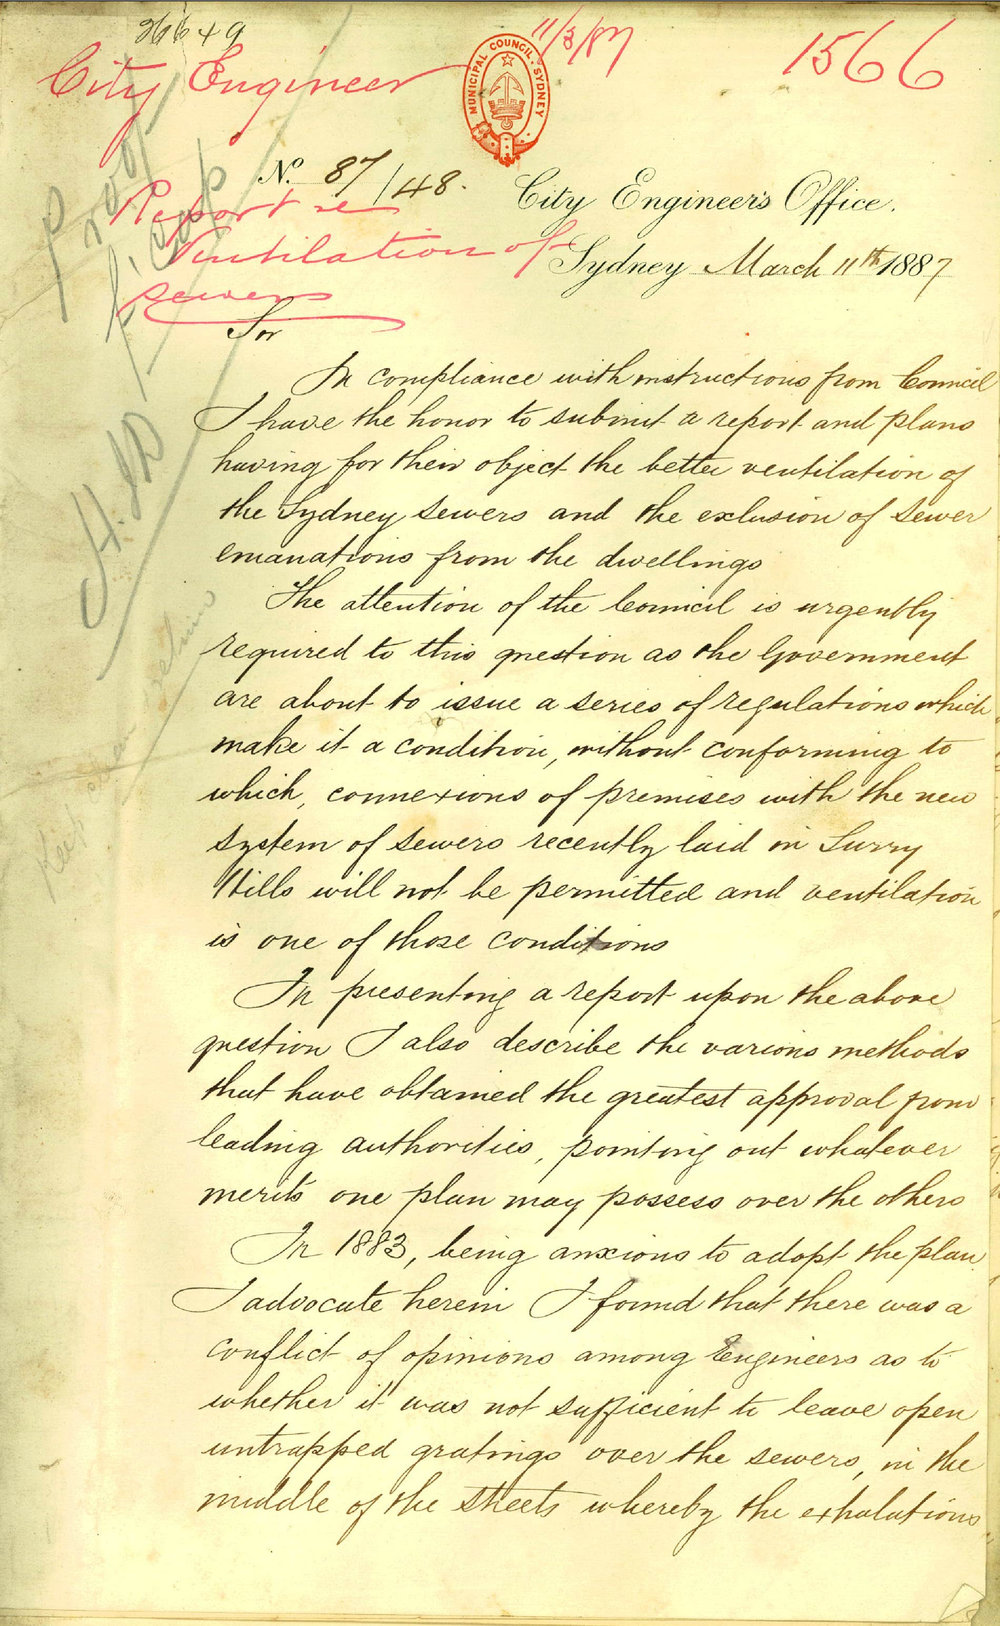 26649
11/3/87
1566
City Engineer
MUNICIPAL COUNCIL · SYDNEY
No. 87/48.
City Engineer's Office.
Report re
Ventilation of
sewers
Sydney March 11th 1887
Proof
Sir
In compliance with instructions from Council
I have the honor to submit a report and plans
having for their object the better ventilation of
the Sydney sewers and the exclusion of sewer
emanations from the dwellings
The attention of the Council is urgently
required to this question as the Government
are about to issue a series of regulations which
make it a condition, without conforming to
which, connexions of premises with the new
system of sewers recently laid in Surry
Hills will not be permitted and ventilation
is one of those conditions
In presenting a report upon the above
question I also describe the various methods
that have obtained the greatest approval from
leading authorities, pointing out whatever
merits one plan may possess over the others
In 1883, being anxious to adopt the plan
I advocate herein I found that there was a
conflict of opinions among Engineers as to
whether it was not sufficient to leave open
untrapped gratings over the sewers, in the
middle of the streets whereby the exhalations